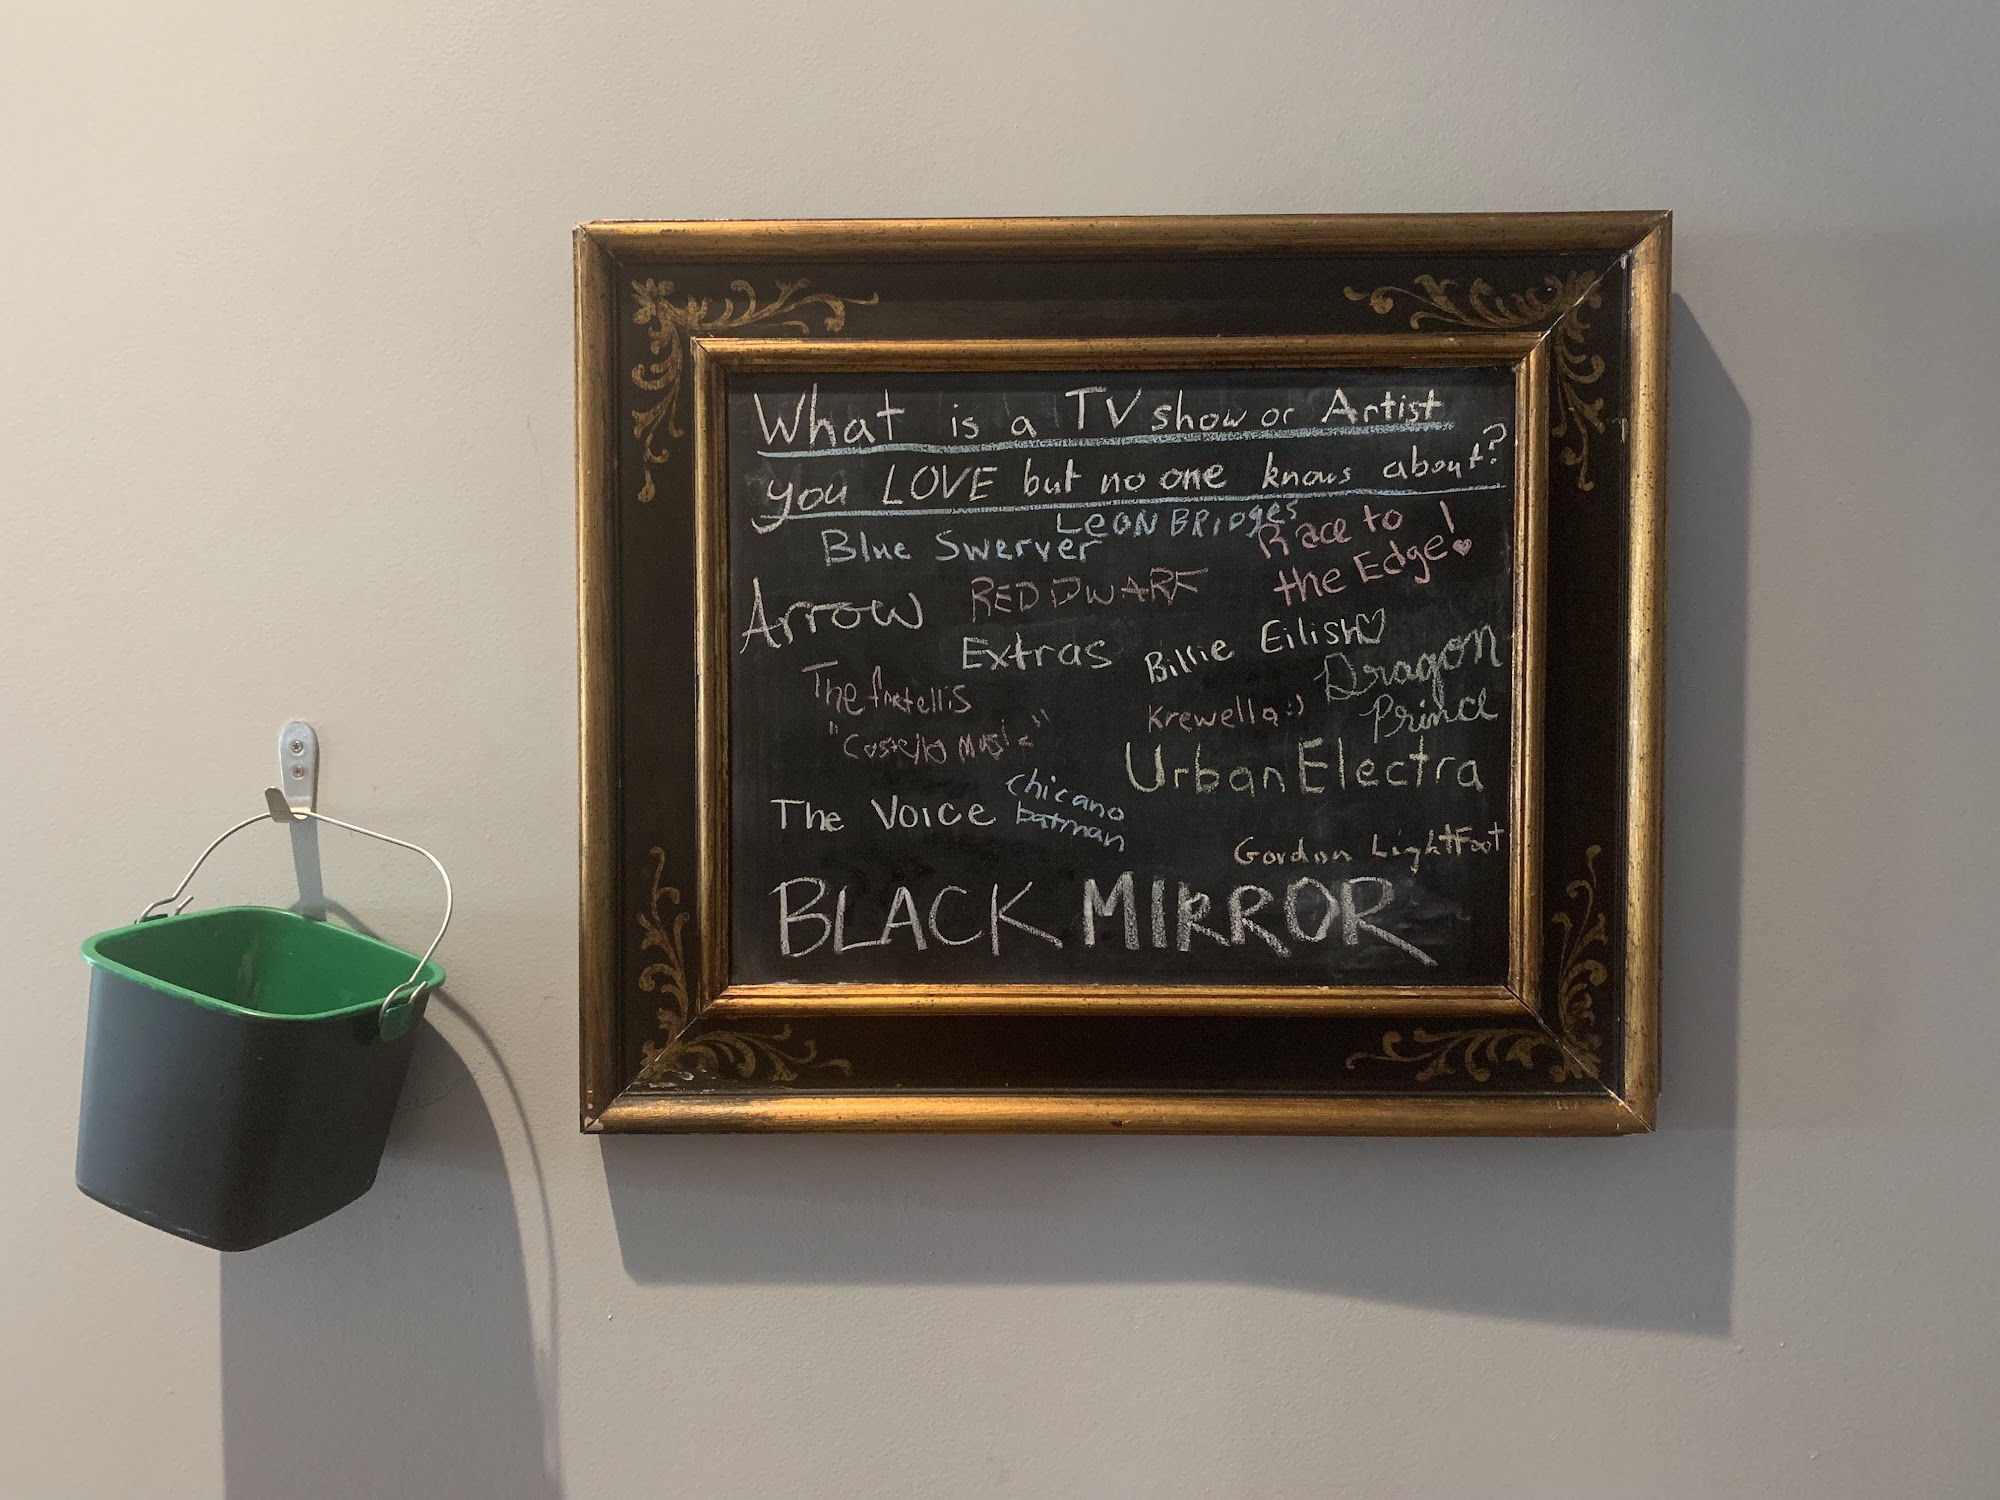 What is a TV show or Artist
you LOVE but no one knows about?
LEON BRIDGES
Blue Swerver
Race to
the Edge!
RED DWARF
Arrow
Extras
Billie Eilish
Dragon
Prince
The fratellis
"Costello Music"
Krewella :)
Urban Electra
The Voice
chicano
batman
Gordon Lightfoot
BLACK MIRROR